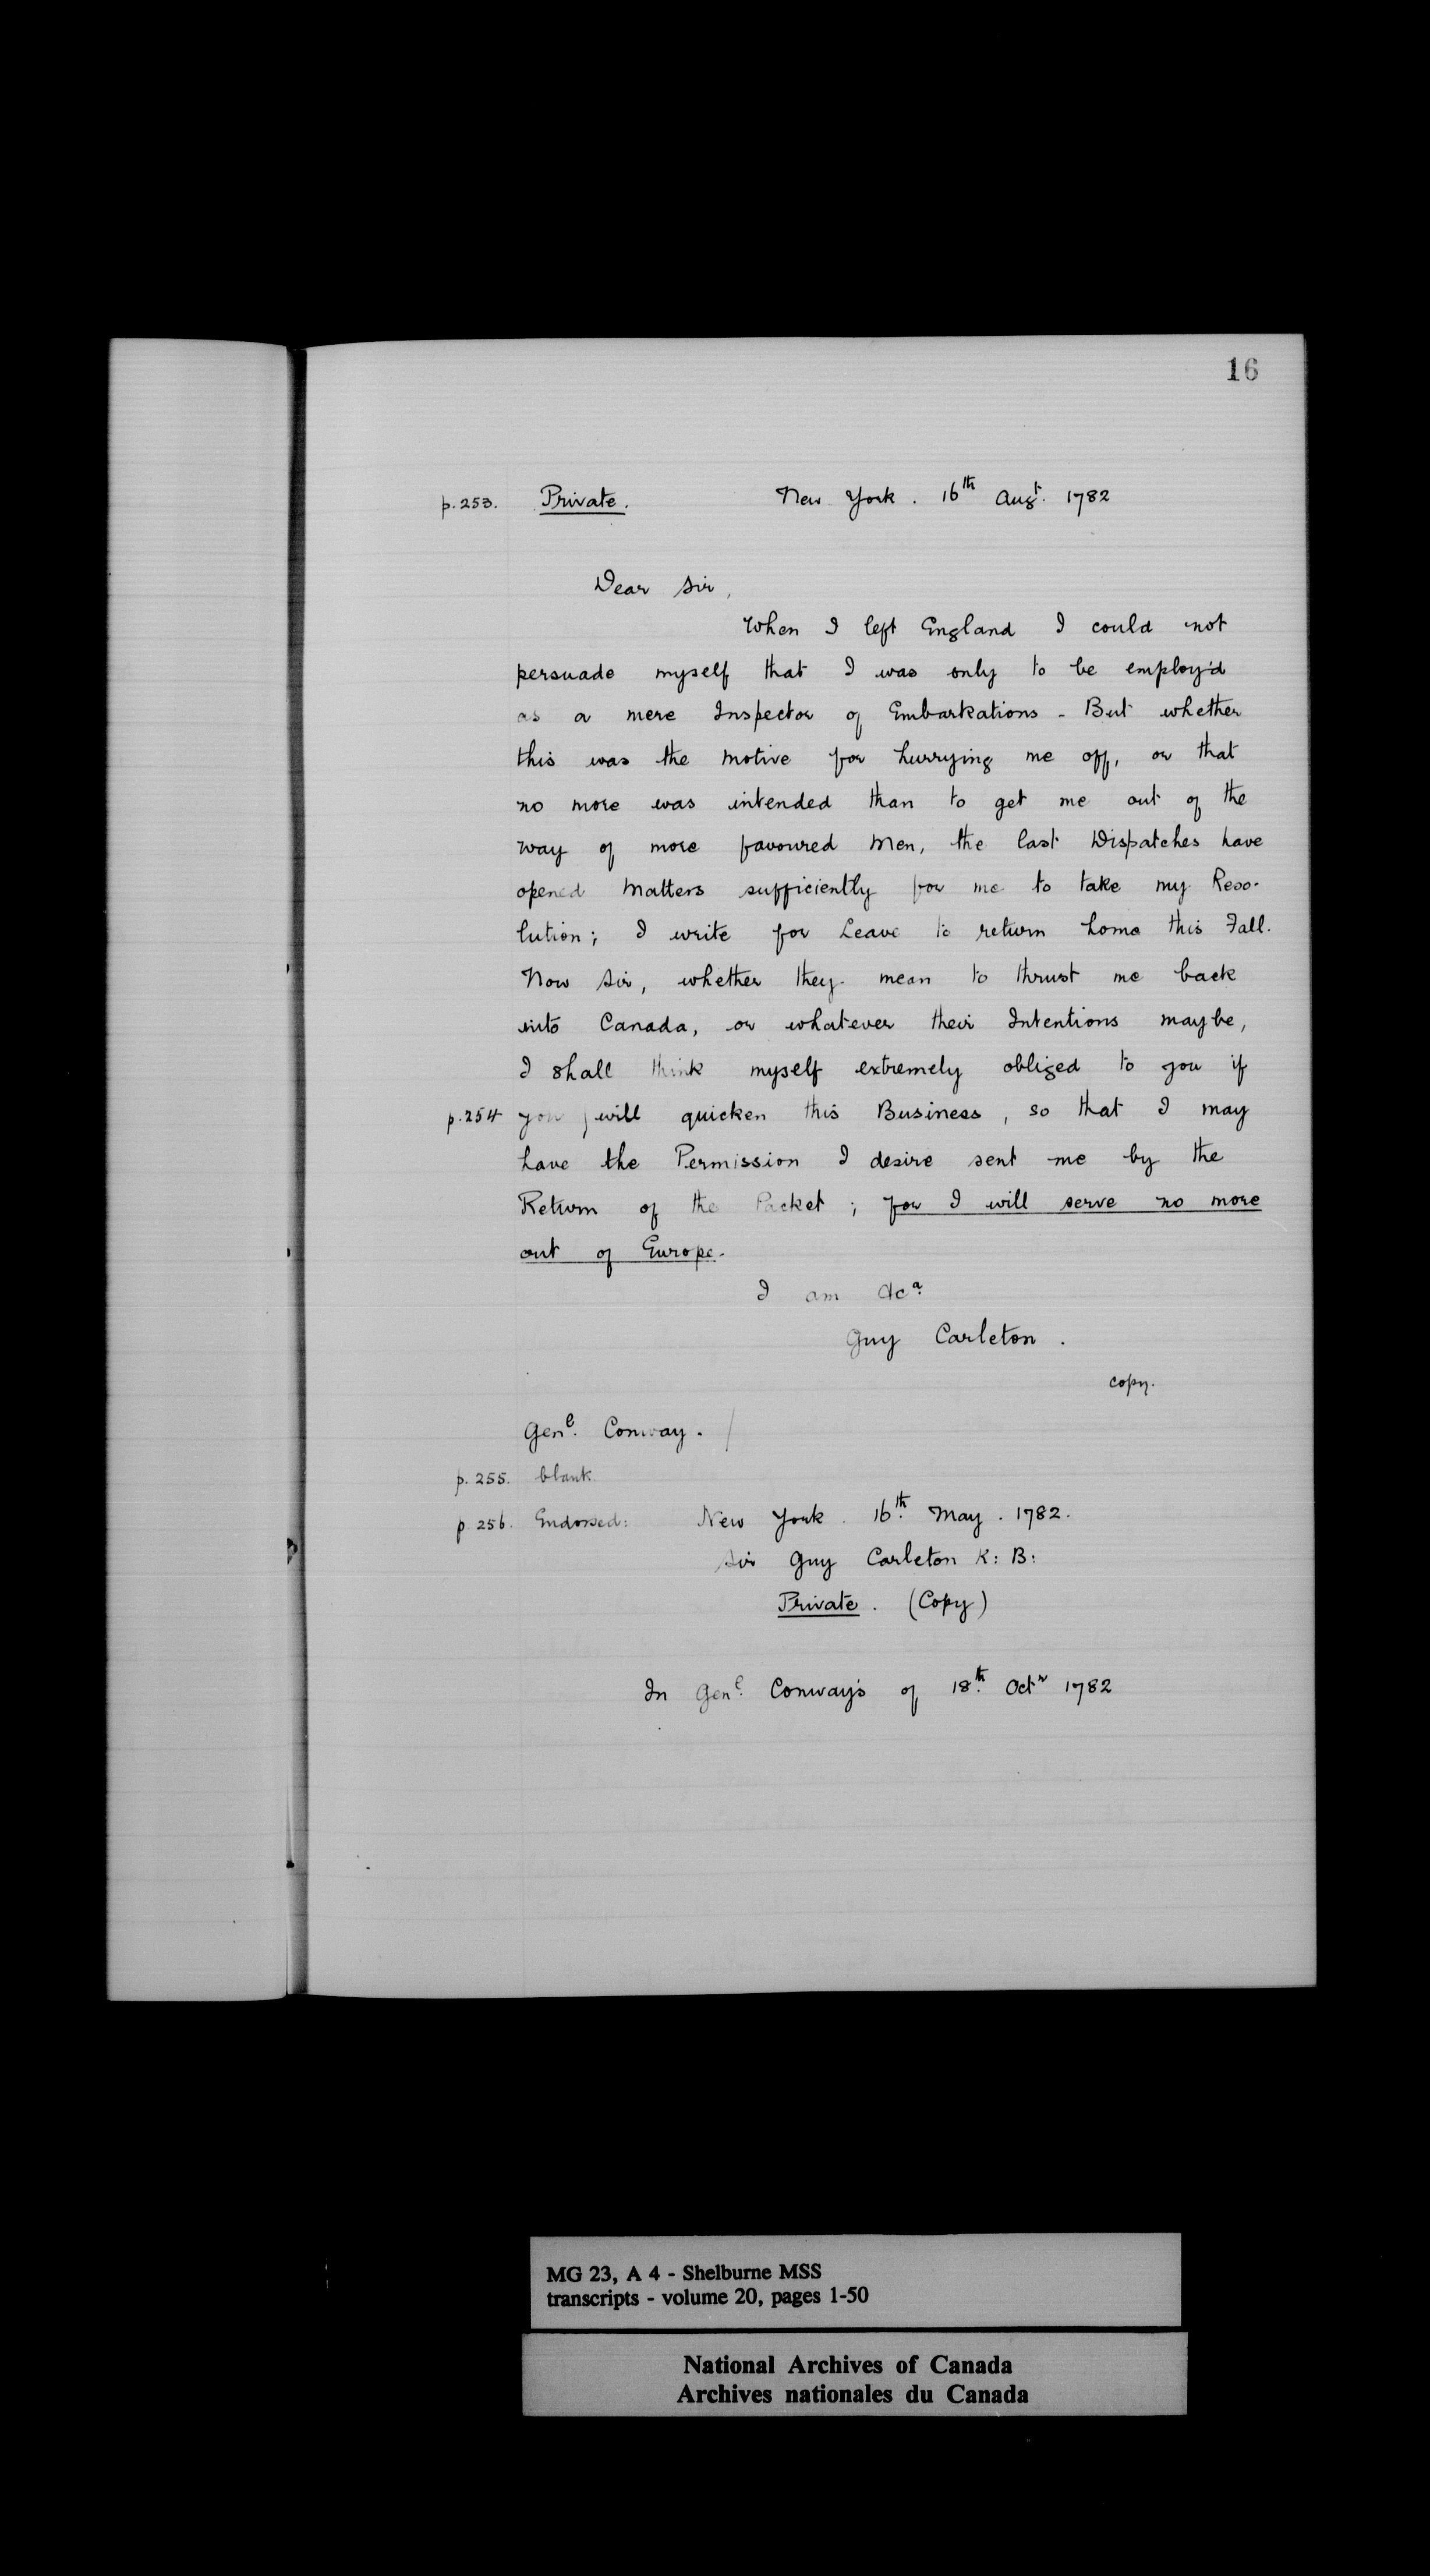 16
p. 253. Private. New York. 16th Augt. 1782
Dear Sir,
When I left England I could not
persuade myself that I was only to be employ'd
as a mere Inspector of Embarkations - But whether
this was the motive for hurrying me off, or that
no more was intended than to get me out of the
way of more favoured Men, the last Dispatches have
opened Matters sufficiently for me to take my Reso-
lution; I write for Leave to return home this Fall.
Now Sir, whether they mean to thrust me back
into Canada, or whatever their Intentions maybe,
I shall think myself extremely obliged to you if
p. 254 you / will quicken this Business, so that I may
have the Permission I desire sent me by the
Return of the Packet; for I will serve no more
out of Europe.
I am &ca.
Guy Carleton.
copy.
Genl. Conway. /
p. 255. blank
p 256. Endorsed: New York. 16th. May. 1782.
Sir Guy Carleton K: B:
Private. (Copy)
In Genl. Conway's of 18th. Octr 1782
MG 23, A 4 - Shelburne MSS
transcripts - volume 20, pages 1-50
National Archives of Canada
Archives nationales du Canada